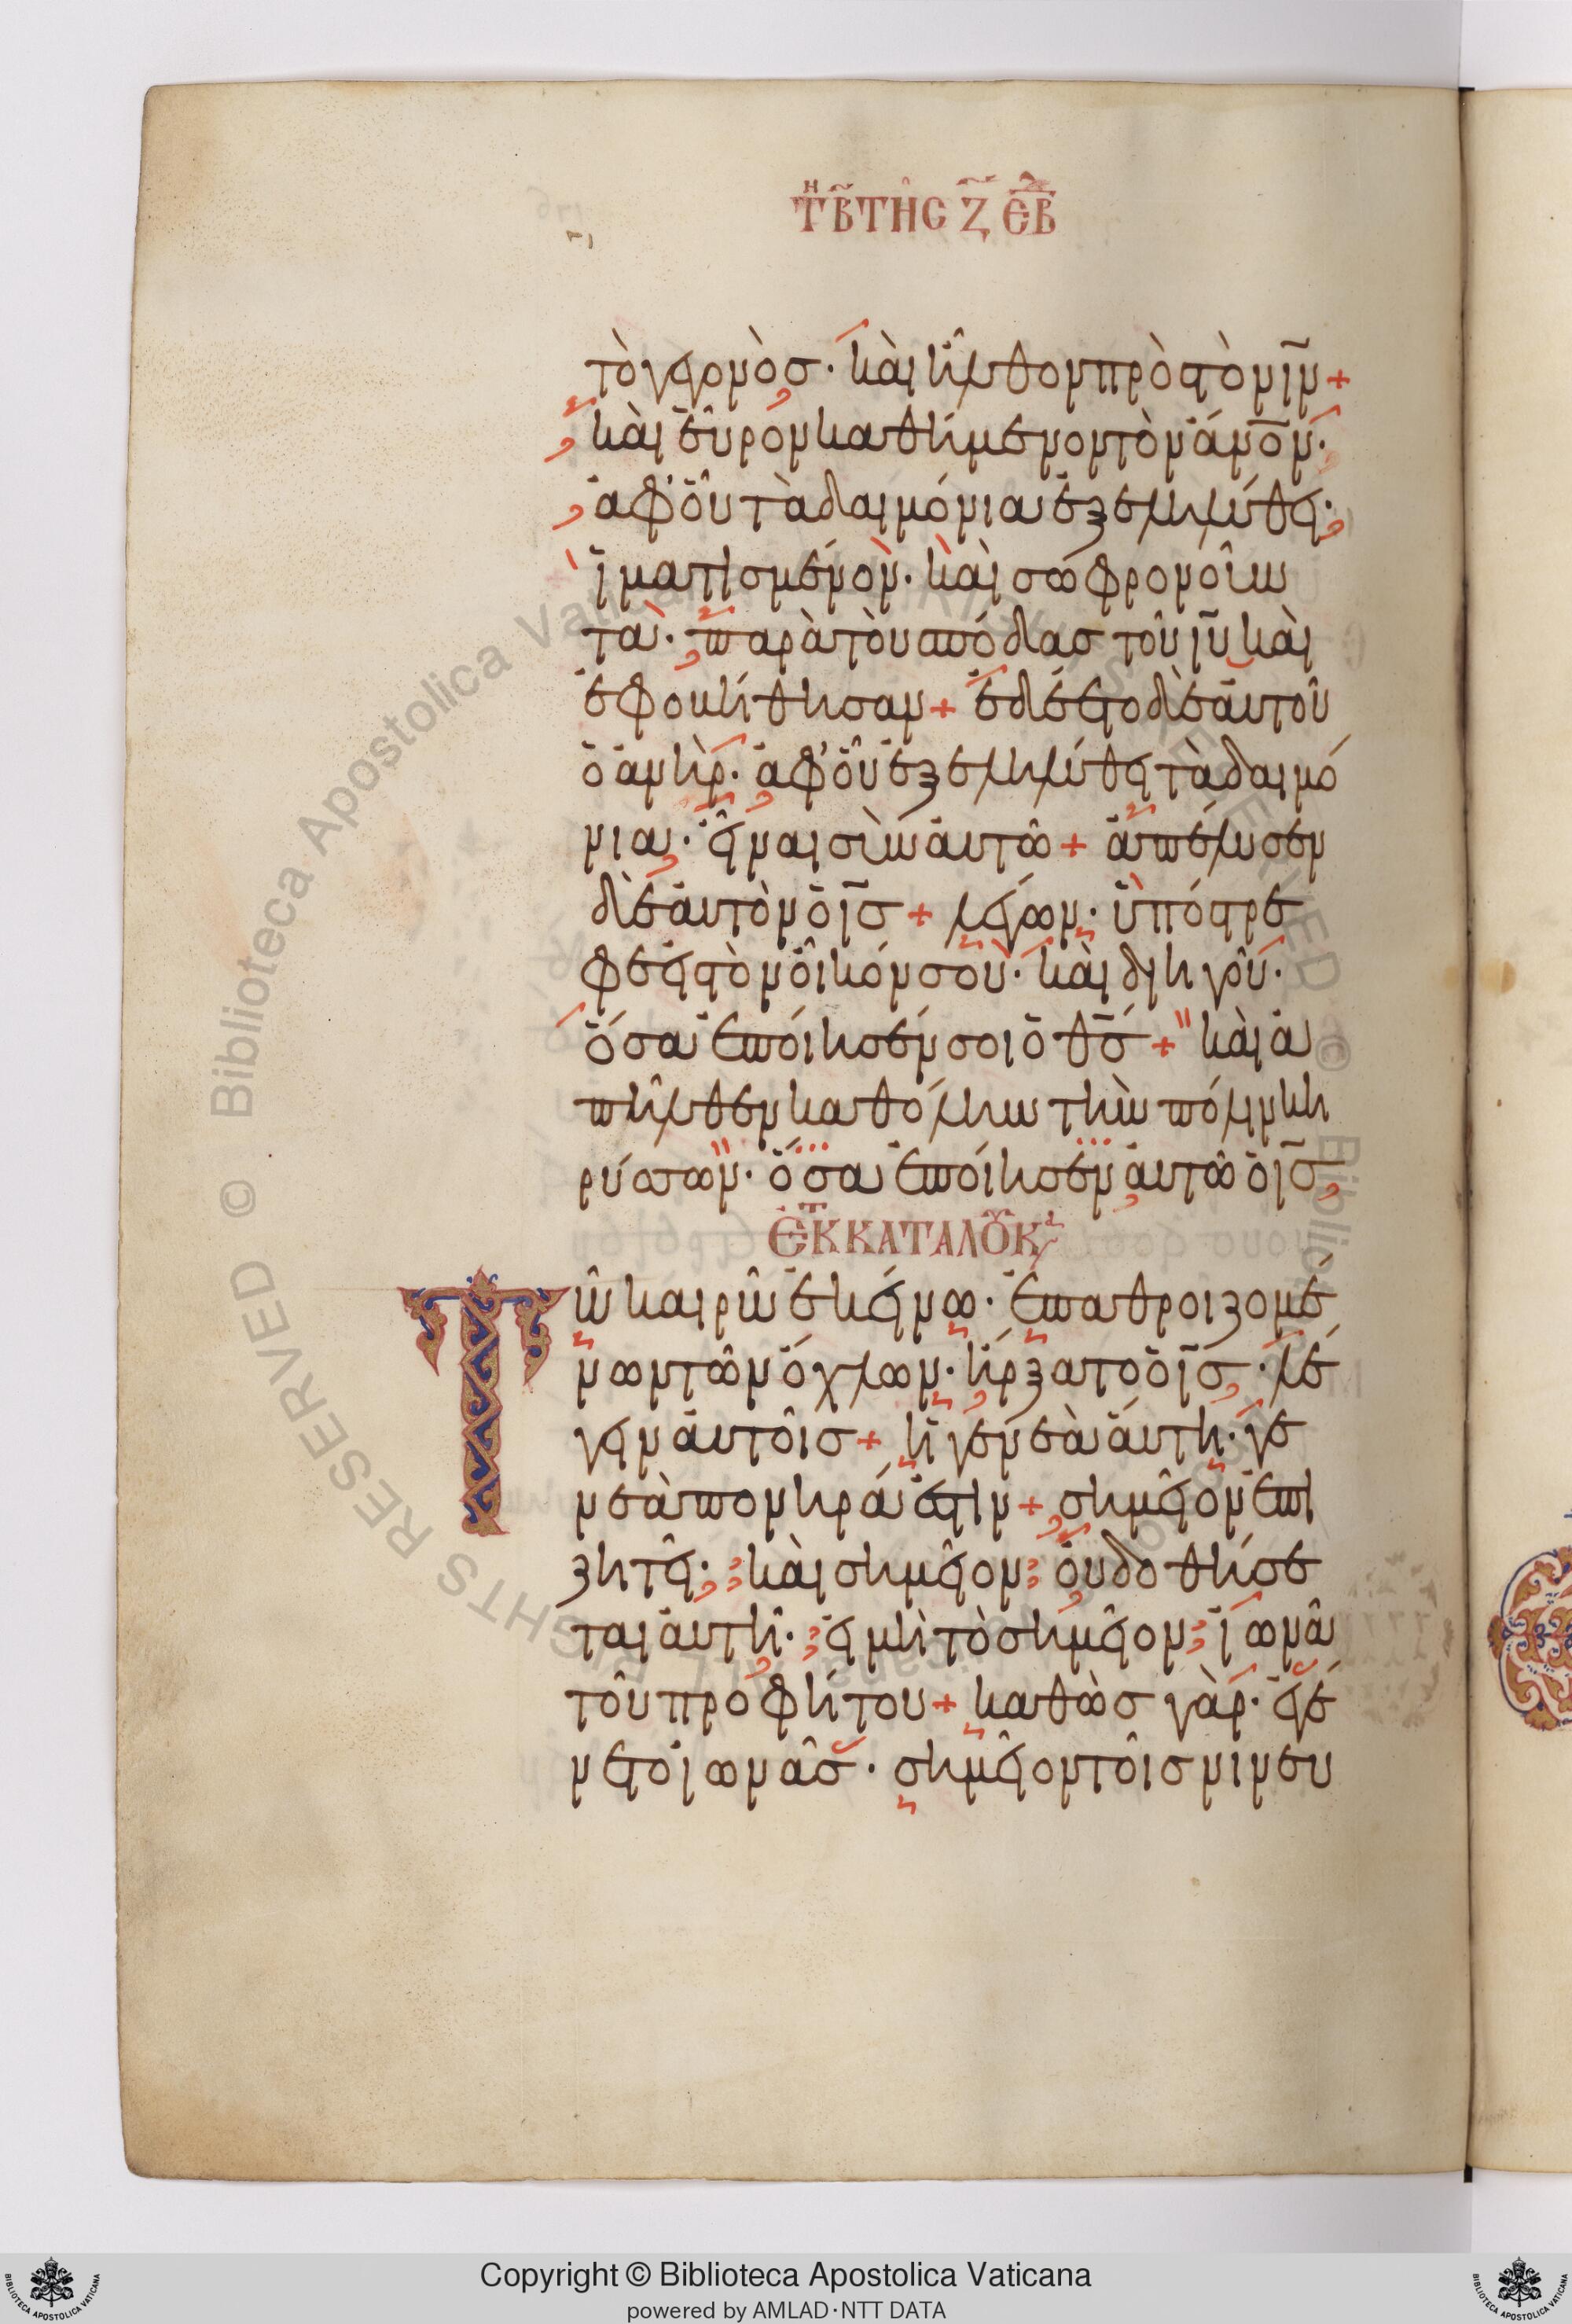 τῆ β̄ τῆς ζ̄ ἑβ
τὸ γεγονὸσ· καὶ ἦλθον πρὸσ τὸν ι̅ν̅ +
καὶ εὗρον καθήμενον τὸν ἄν̅ο̅ν̅·
ἀφ' οὗ τὰ δαιμόνια ἐξεληλύθει·
ἱματισμένον· καὶ σωφρονοῦν
τα· παρὰ τοὺσ πόδασ τοῦ ι̅υ̅ καὶ
ἐφοβήθησαν + ἐδέετο δὲ αὐτοῦ
ὁ ἀνὴρ· ἀφ' οὗ ἐξεληλύθει τὰ δαιμό
νια· εἶναι σὺν αὐτῶ + ἀπέλυσεν
δὲ αὐτὸν ὁ ι̅σ̅ + λέγων· ὑπόστρε
φε εἰσ τὸν οἶκόν σου· καὶ διηγοῦ·
ὅσα ἐποίησέν σοι ὁ θ̅σ̅ + καὶ ἀ
πῆλθεν καθ' ὅλην τὴν πόλιν κη
ρύσσων· ὅσα ἐποίησεν αὐτῶ ὁ ι̅σ̅
ἐκ τ κατὰ λουκ
Τῶ καιρῶ ἐκείνω· ἐπαθροιζομέ
νων τῶν ὄχλων· ἤρξατο ὁ ι̅σ̅· λέ
γειν αὐτοῖσ + ἡ γενεὰ αὕτη· γε
νεὰ πονηρά ἐστιν + σημεῖον ἐπι
ζητεῖ· καὶ σημεῖον οὐ δοθήσε
ται αὐτῆ· εἰ μὴ τὸ σημεῖον ἰωνᾶ
τοῦ προφήτου + καθὼσ γὰρ· ἐγέ
νετο ἰωνᾶσ· σημεῖον τοῖσ νινευ
© Biblioteca Apostolica Vaticana
Copyright © Biblioteca Apostolica Vaticana
powered by AMLAD·NTT DATA